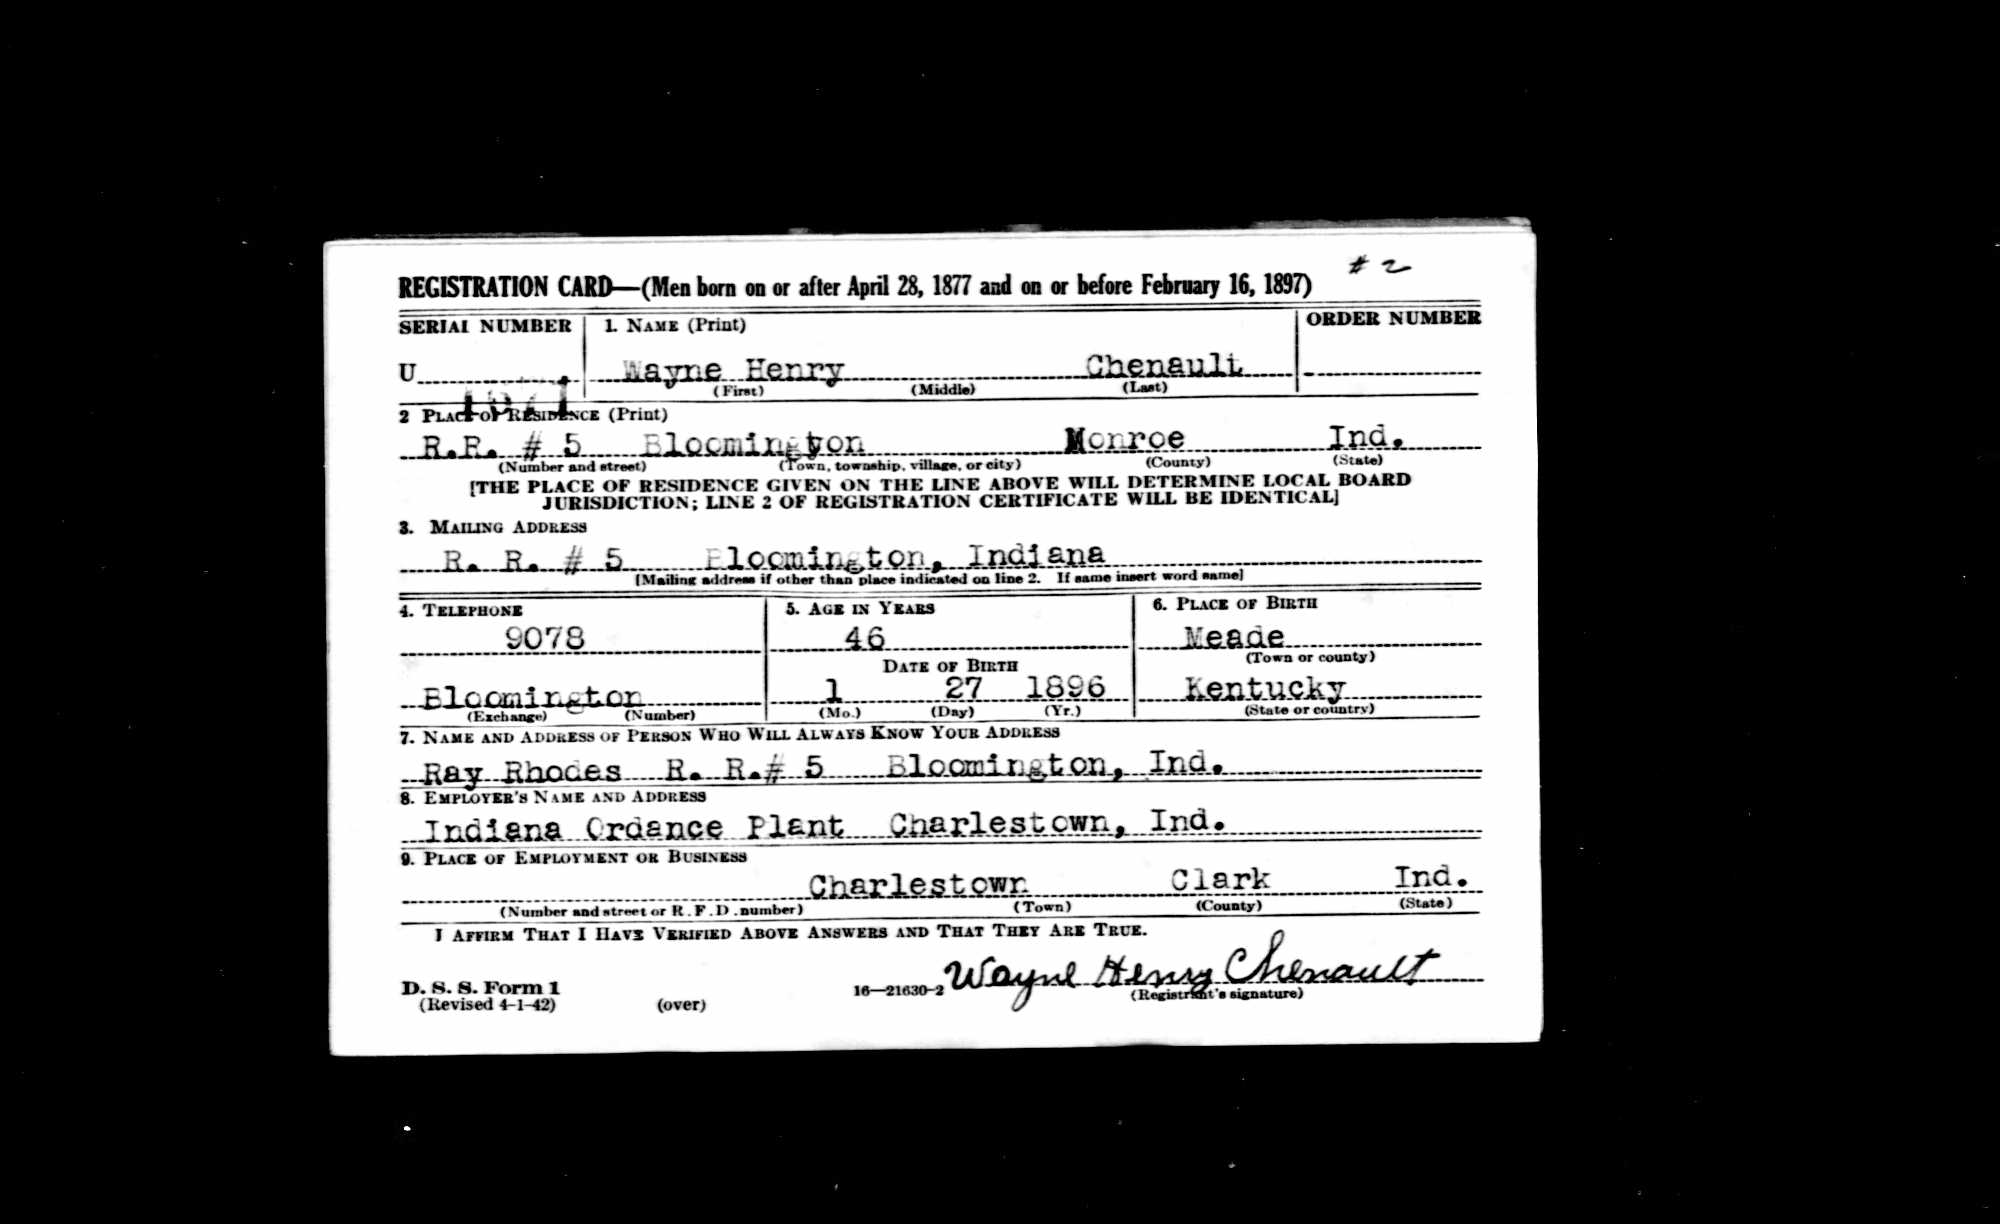 # 2
REGISTRATION CARD—(Men born on or after April 28, 1877 and on or before February 16, 1897)
SERIAL NUMBER 1. NAME (Print) ORDER NUMBER
U Wayne Henry Chenault
(First) (Middle) (Last)
2 PLACE OF RESIDENCE (Print)
R.R. # 5 Bloomington Monroe Ind.
(Number and street) (Town, township, village, or city) (County) (State)
[THE PLACE OF RESIDENCE GIVEN ON THE LINE ABOVE WILL DETERMINE LOCAL BOARD
JURISDICTION; LINE 2 OF REGISTRATION CERTIFICATE WILL BE IDENTICAL]
3. MAILING ADDRESS
R. R. # 5 Bloomington, Indiana
[Mailing address if other than place indicated on line 2. If same insert word same]
4. TELEPHONE 5. AGE IN YEARS 6. PLACE OF BIRTH
9078 46 Meade
DATE OF BIRTH (Town or county)
Bloomington 1 27 1896 Kentucky
(Exchange) (Number) (Mo.) (Day) (Yr.) (State or country)
7. NAME AND ADDRESS OF PERSON WHO WILL ALWAYS KNOW YOUR ADDRESS
Ray Rhodes R. R.# 5 Bloomington, Ind.
8. EMPLOYER'S NAME AND ADDRESS
Indiana Ordance Plant Charlestown, Ind.
9. PLACE OF EMPLOYMENT OR BUSINESS
Charlestown Clark Ind.
(Number and street or R.F.D. number) (Town) (County) (State)
I AFFIRM THAT I HAVE VERIFIED ABOVE ANSWERS AND THAT THEY ARE TRUE.
Wayne Henry Chenault
D. S. S. Form 1 16—21630-2 (Registrant's signature)
(Revised 4-1-42) (over)